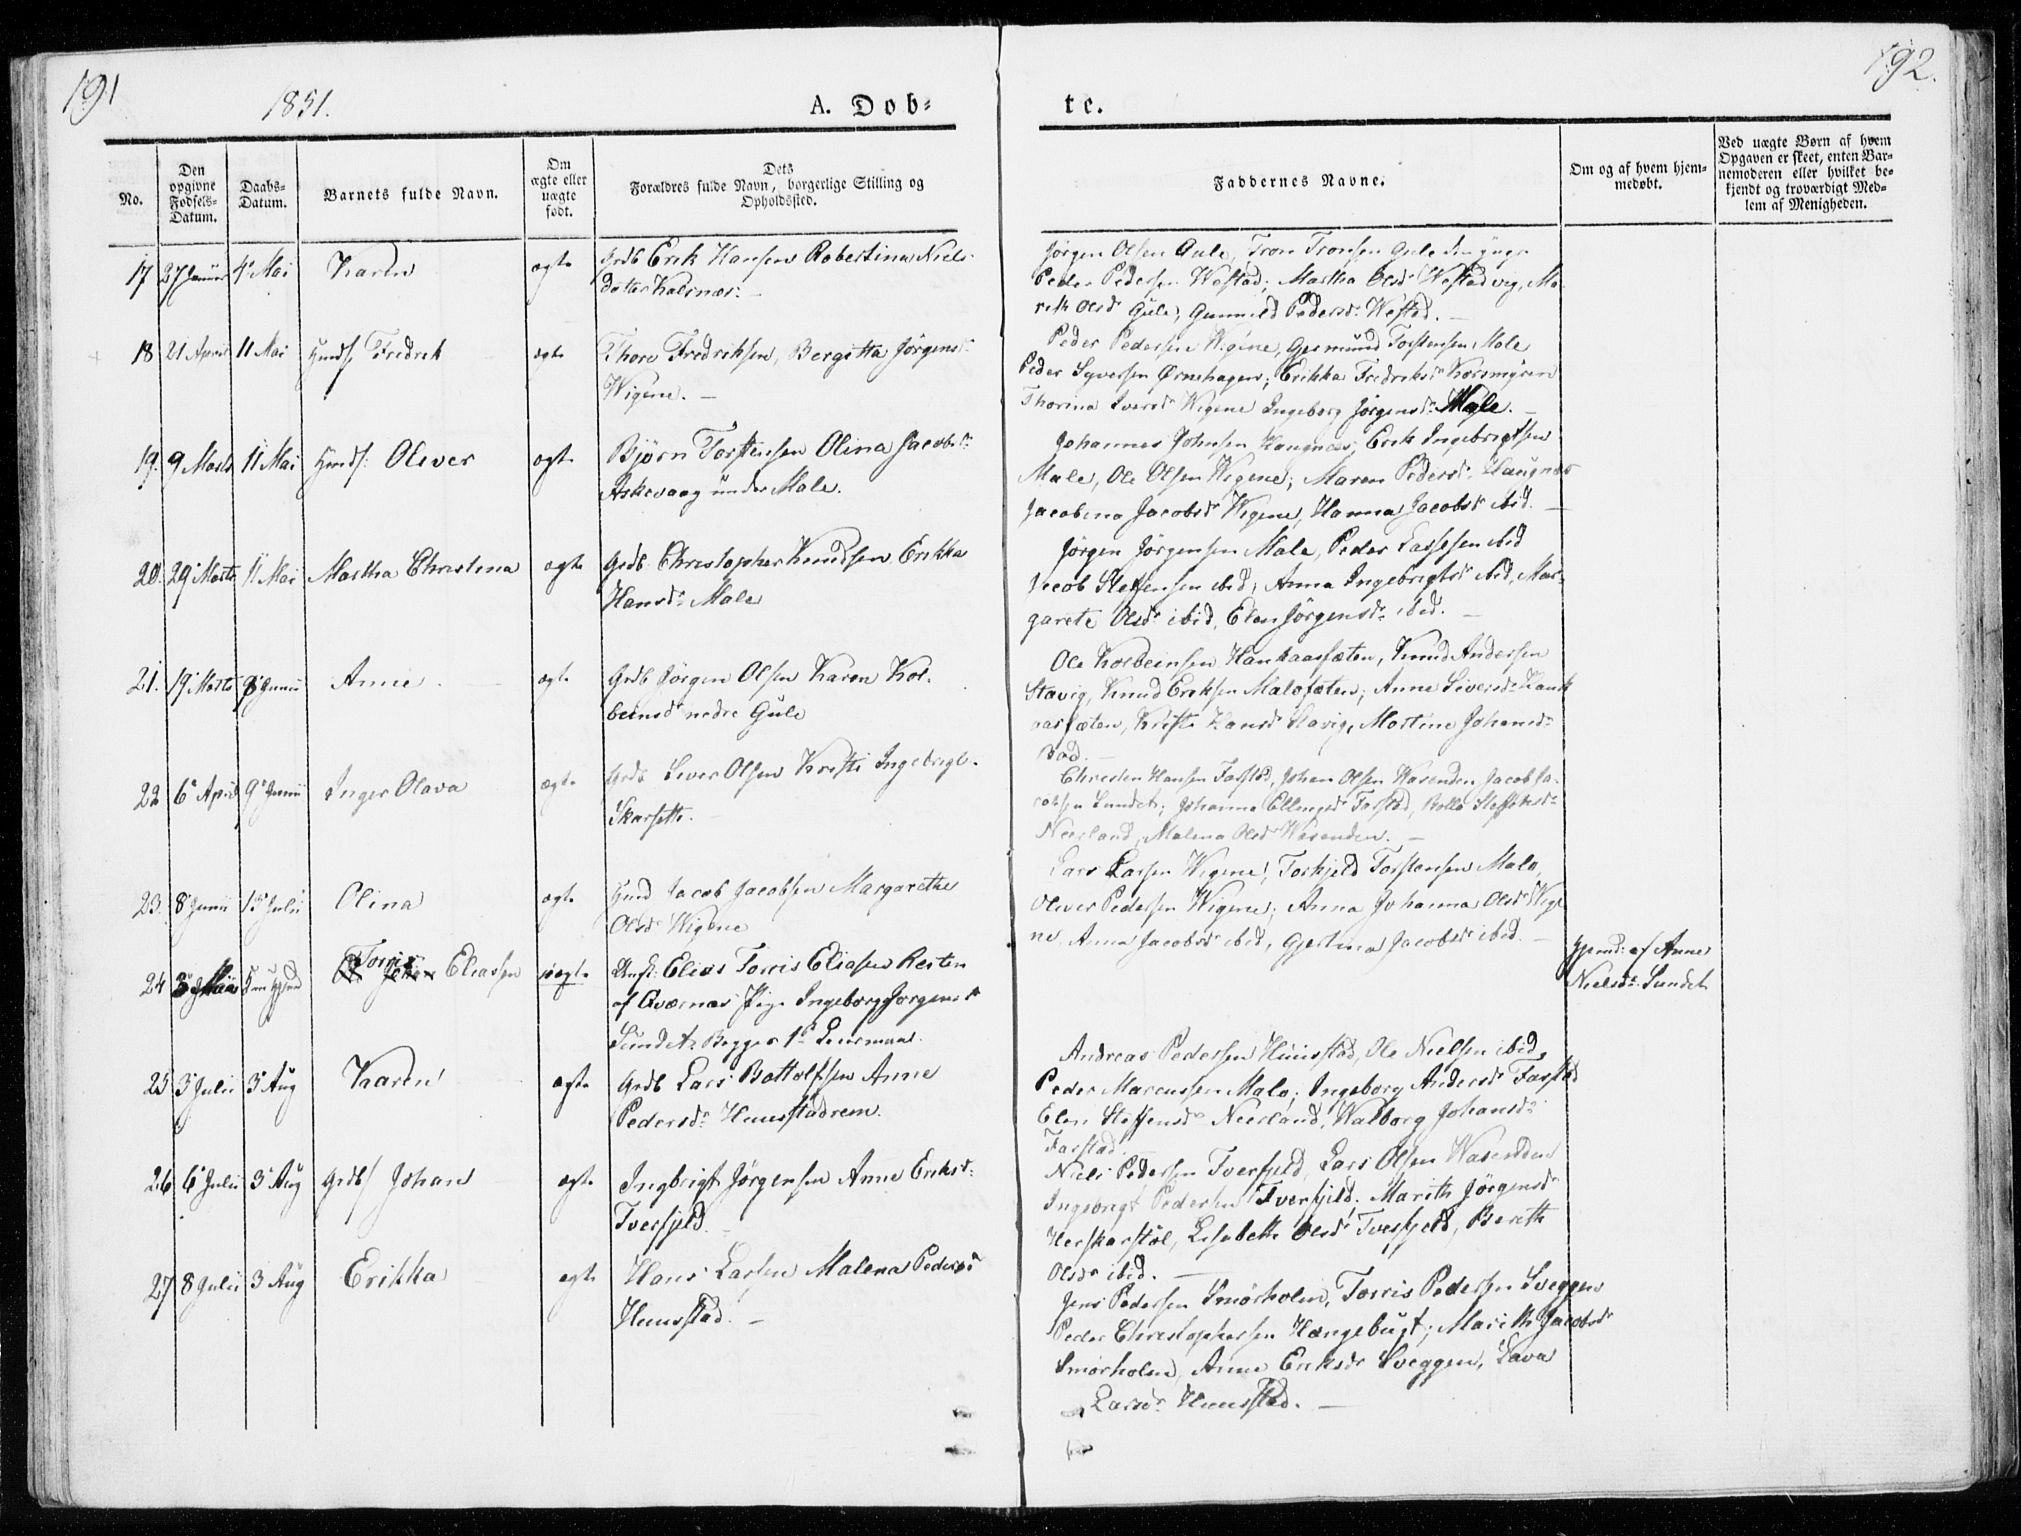 191
1851.
A. Dob=
te.
192.
No.
Den opgivne Fødsels-Datum.
Daabs-Datum.
Barnets fulde Navn.
Om ægte eller uægte født.
Dets Forældres fulde Navn, borgerlige Stilling og Opholdssted.
Faddernes Navne.
Om og af hvem hjem-medøbt.
Ved uægte Børn af hvem Opgaven er skeet, enten Bar-nemoderen eller hvilket be-kjendt og troværdigt Med-lem af Menigheden.
17 27 4 Mai Karen ægte Grdb Erik Hansen Robertina Niels
datter Kalsnæs.
Jörgen Olsen Gule, Tron Tronsen Gule
Peder Pedersen Westad; Martha Olsdr Westadvig, Ma
rith Olsdr Gule, Gunnild Pedersdr Westad.
18 21 April 11 Mai Hmds Fredrik ægte Thore Fredriksen, Bergitta Jörgensdr
Wigene.
Peder Pedersen Wigene, Germund Torstensen Male
Peder Syversen Ørnehagen; Erikka Fredriksdr Korsmyren
Thorina Iversdr Wigene Ingeborg Jörgensdr Male.
19. 9 Marts 11 Mai Hmds: Oliver ægte Björn Torstensen Olina Jacobsdr
Askevaag under Male.
Johannes Johnsen Haugnæs, Erik Ingebrigtsen
Male, Ole Olsen Wigene; Maren Pedersdr Haugnæs
Jacobina Jacobsdr Wigene, Hanna Jacobsdr ibid.
20. 29 Marts 11 Mai Martha Christina ægte Grdb: Christopher Knudsen Erikka
Hansdr Male
Jörgen Jörgensen Male, Peder Lassesen ibid
Jacob Steffensen ibid; Anna Ingebrigtsdr ibid, Mar-
garete Olsdr ibid, Elen Jörgensdr ibid.
21. 19 Marts 9 Junii Anne ægte Grdb Jörgen Olsen Karen Kol-
beinsdr nedre Gule
Ole Kolbeinsen Haukaasfæten, Knud Andersen
Stavig, Knud Eriksen Malefæten; Anne Siversdr Hauk
aasfæten, Kristi Hansdr Stavig, Martine Johansdr
Bad.
22 6 April 9 Junii Inger Olava ægte Grdb Sever Olsen Kristi Ingebrigt-
Skarsette.
Christen Hansen Farstad, Johan Olsen Wasenden Jacob Ja-
cobsen Sundet; Johanna Ellingsdr Farstad, Steffensdr
Neerland, Malena Olsdr Wasenden.
23. 8 Junii 13 Julii Olina ægte Hmd Jacob Jacobsen Margarethe
Olsdr Wigene
Lars Larsen Wigene, Torkjeld Torstensen Male,
Oliver Pedersen Wigene; Anna Johanna Olsdr Wige
ne, Anna Jacobsdr ibid, Gjertina Jacobsdr ibid.
24 Torris Eliassen uægte Elias Torris Eliasen Resten
af Avernæs Pige Ingeborg Jörgensdr
Sundet. Begges 1ste Leiermaal
Hjemd: af Anne
Nielsdr Sundet
25 3 Julii 3 Aug Karen ægte Grdb Lars Bottolfsen Anne
Pedersdr Hunsstadrem.
Andreas Pedersen Hunsstad, Ole Nielsen ibid,
Peder Marcussen Male; Ingeborg Andersdr Farstad
Elen Steffensdr Neerland, Walborg Johansdr
Farstad.
26 6 Julii 3 Aug Grdb/ Johan ægte Ingbrigt Jörgensen Anne Eriksdr
Tverfjeld.
Niels Pedersen Tverfjeld, Lars Olsen Wasenden
Ingebrigt Pedersen Tverfjeld; Marith Jörgensdr
Herskarstöl, Lisabeth Olsdr Tverfjeld, Bereth
Olsdr ibid.
27 8 Julii 3 Aug Erikka ægte Hans Larsen Malena Pedersdr
Hunsstad.
Jens Pedersen Smörholm, Torris Pedersen Sveggen
Peder Christophersen Hængebugt; Marith Jacobsdr
Smörholm, Anne Eriksdr Sveggen, Lava
Larsdr Hunsstad.